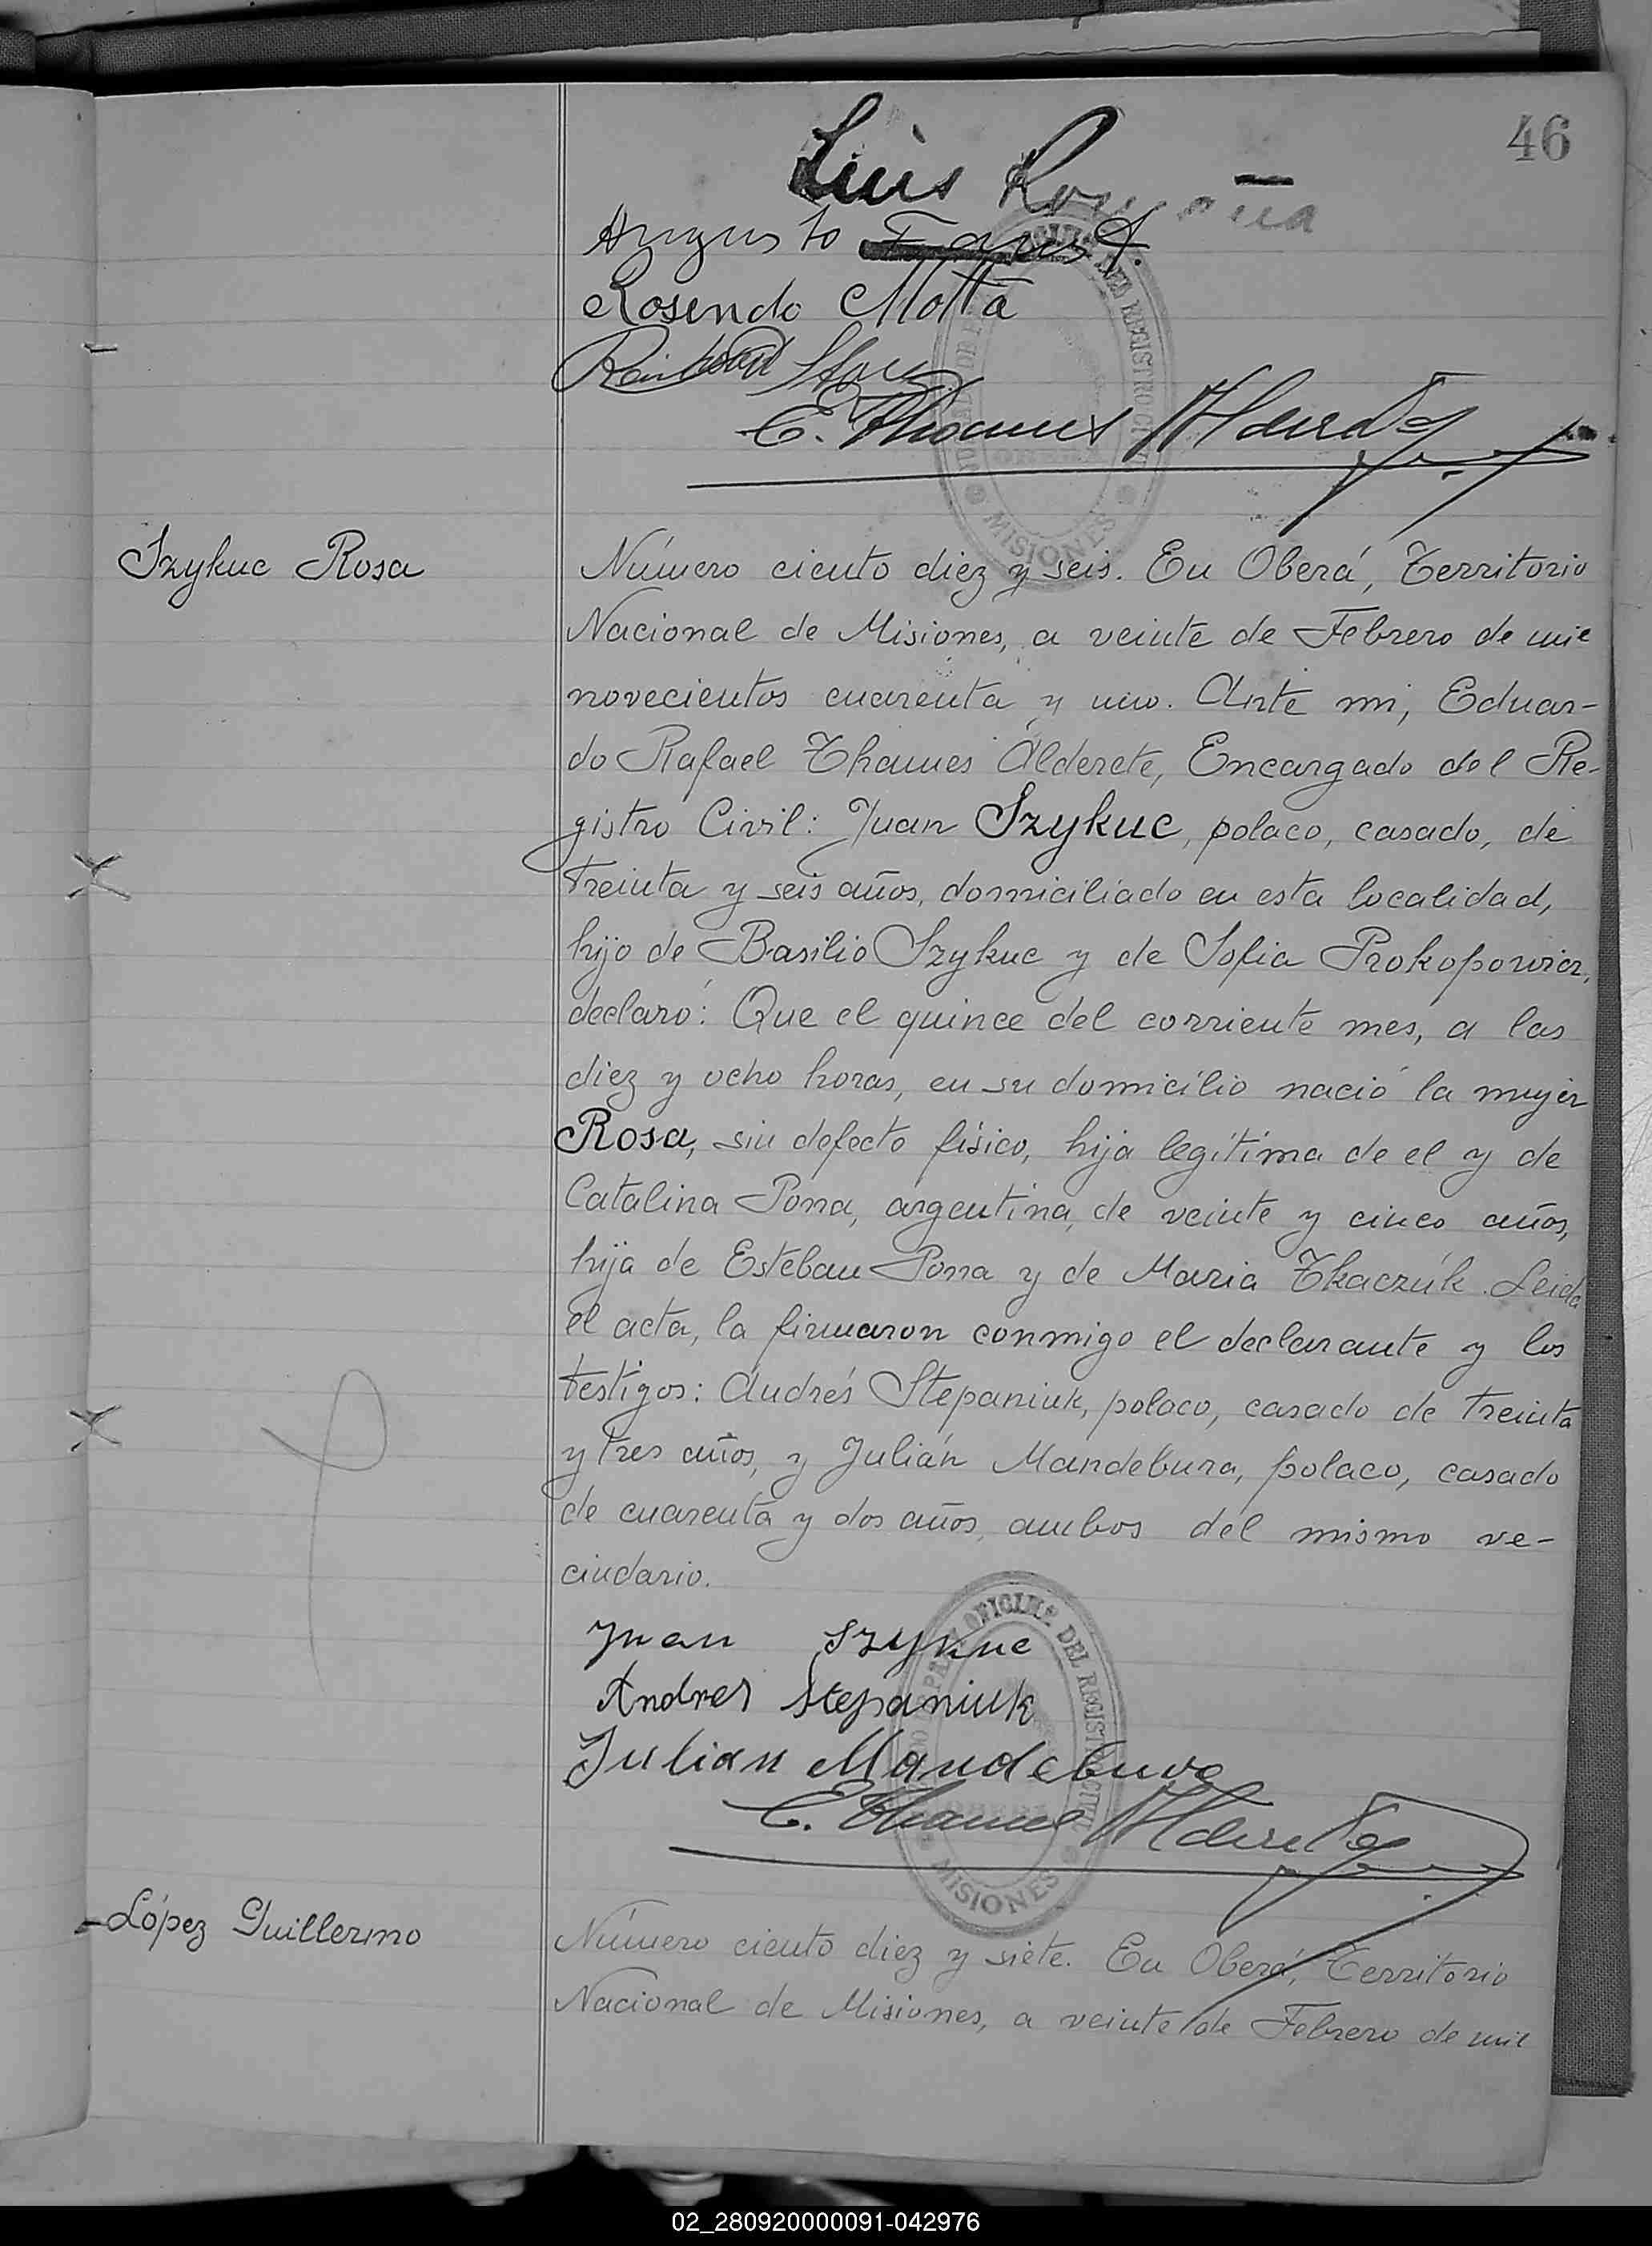 46
Luis Romaña
Augusto
Rosendo Motta
E. Thames Alderete
Szykuc Rosa
Número ciento diez y seis. En Oberá, Territorio
Nacional de Misiones, a veinte de Febrero de mil
novecientos cuarenta y uno. Ante mi, Eduar-
do Rafael Thames Alderete, Encargado del Re-
gistro Civil: Juan Szykuc, polaco, casado, de
treinta y seis años, domiciliado en esta localidad,
hijo de Basilio Szykuc y de Sofia Prokopowicz,
declaró: Que el quince del corriente mes, a las
diez y ocho horas, en su domicilio nació la mujer
Rosa, sin defecto físico, hija legítima de el y de
Catalina Pona, argentina, de veinte y cinco años,
hija de Esteban Pona y de Maria Tkaczúk. Leida
el acta, la firmaron conmigo el declarante y los
testigos: Andrés Stepaniuk, polaco, casado de treinta
y tres años, y Julián Mandebura, polaco, casado
de cuarenta y dos años, ambos del mismo ve-
cindario.
OFICINA DEL REGISTRO CIVIL
MISIONES
Juan Szykuc
Andres Stepaniuk
Julian Mandebura
E. Thames Alderete
López Guillermo
Número ciento diez y siete. En Oberá, Territorio
Nacional de Misiones, a veinte de Febrero de mil
02_280920000091-042976